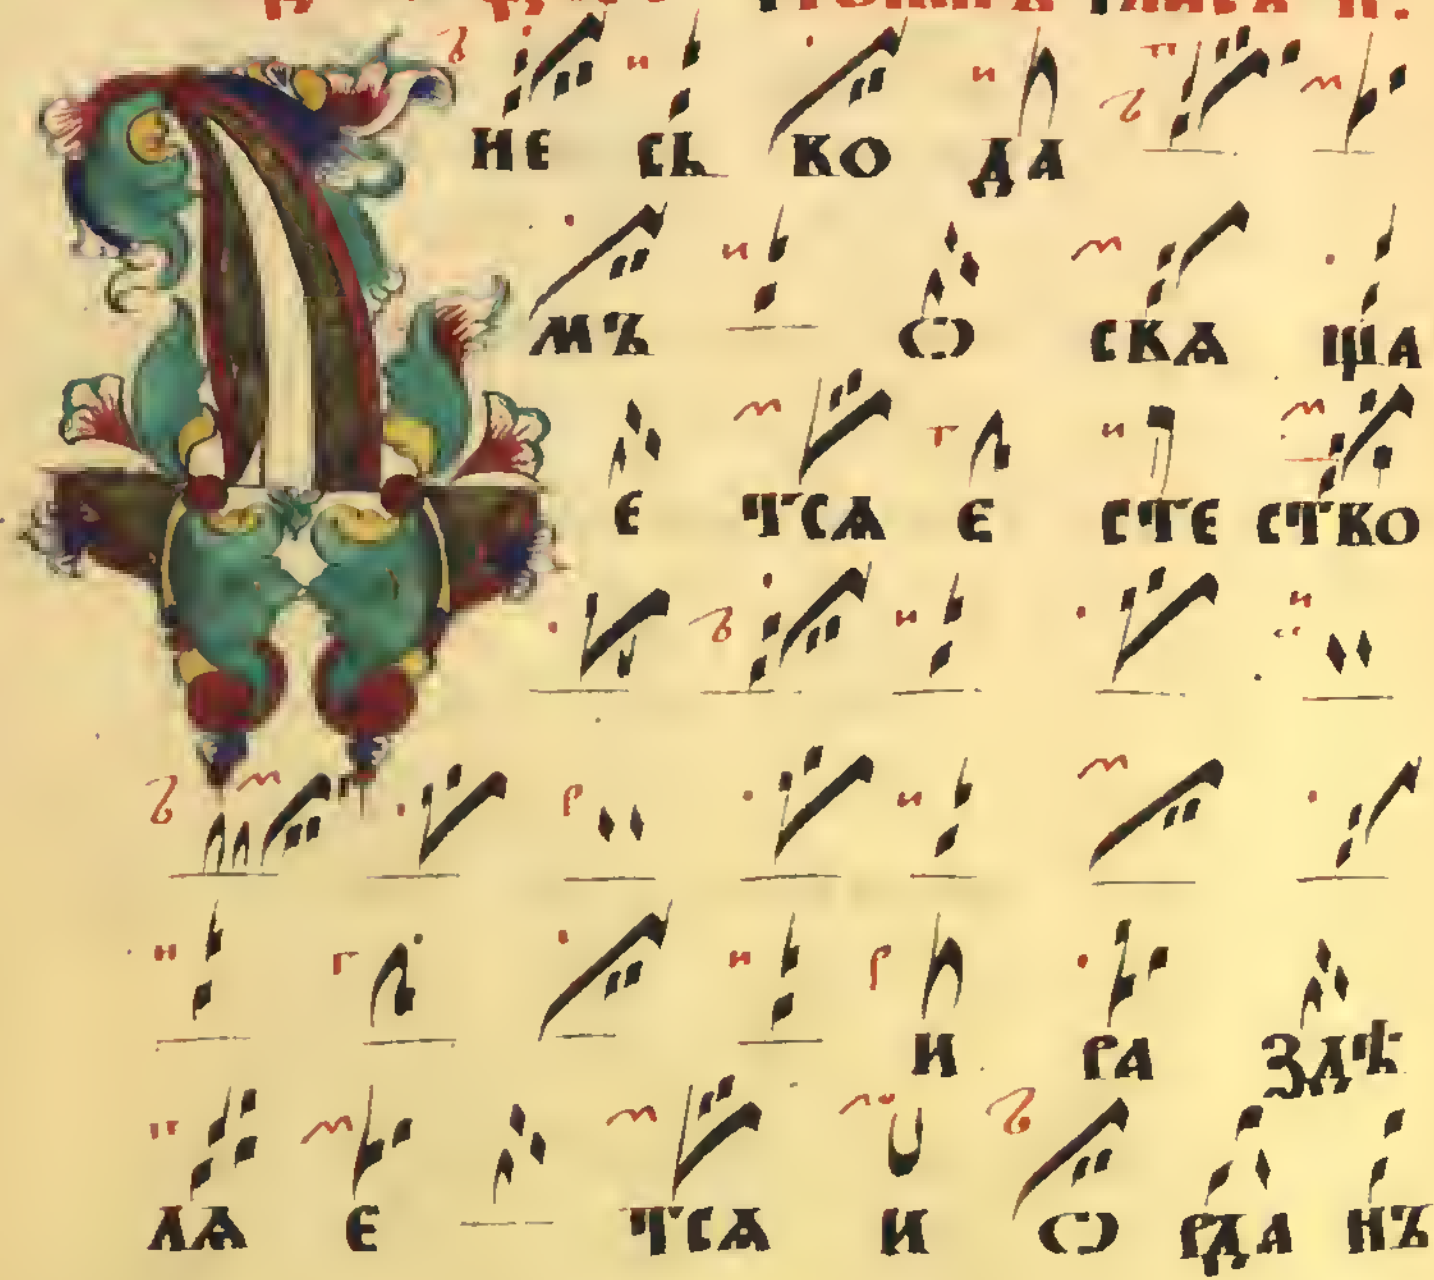 Д
НЕ СЬ ВО ДА
МЪ Ѡ СВѦ ЩА
Е ТСѦ Е СТЕ СТВО
И РА ЗДѢ
ЛѦ Е ТСѦ И Ѡ РДА НЪ